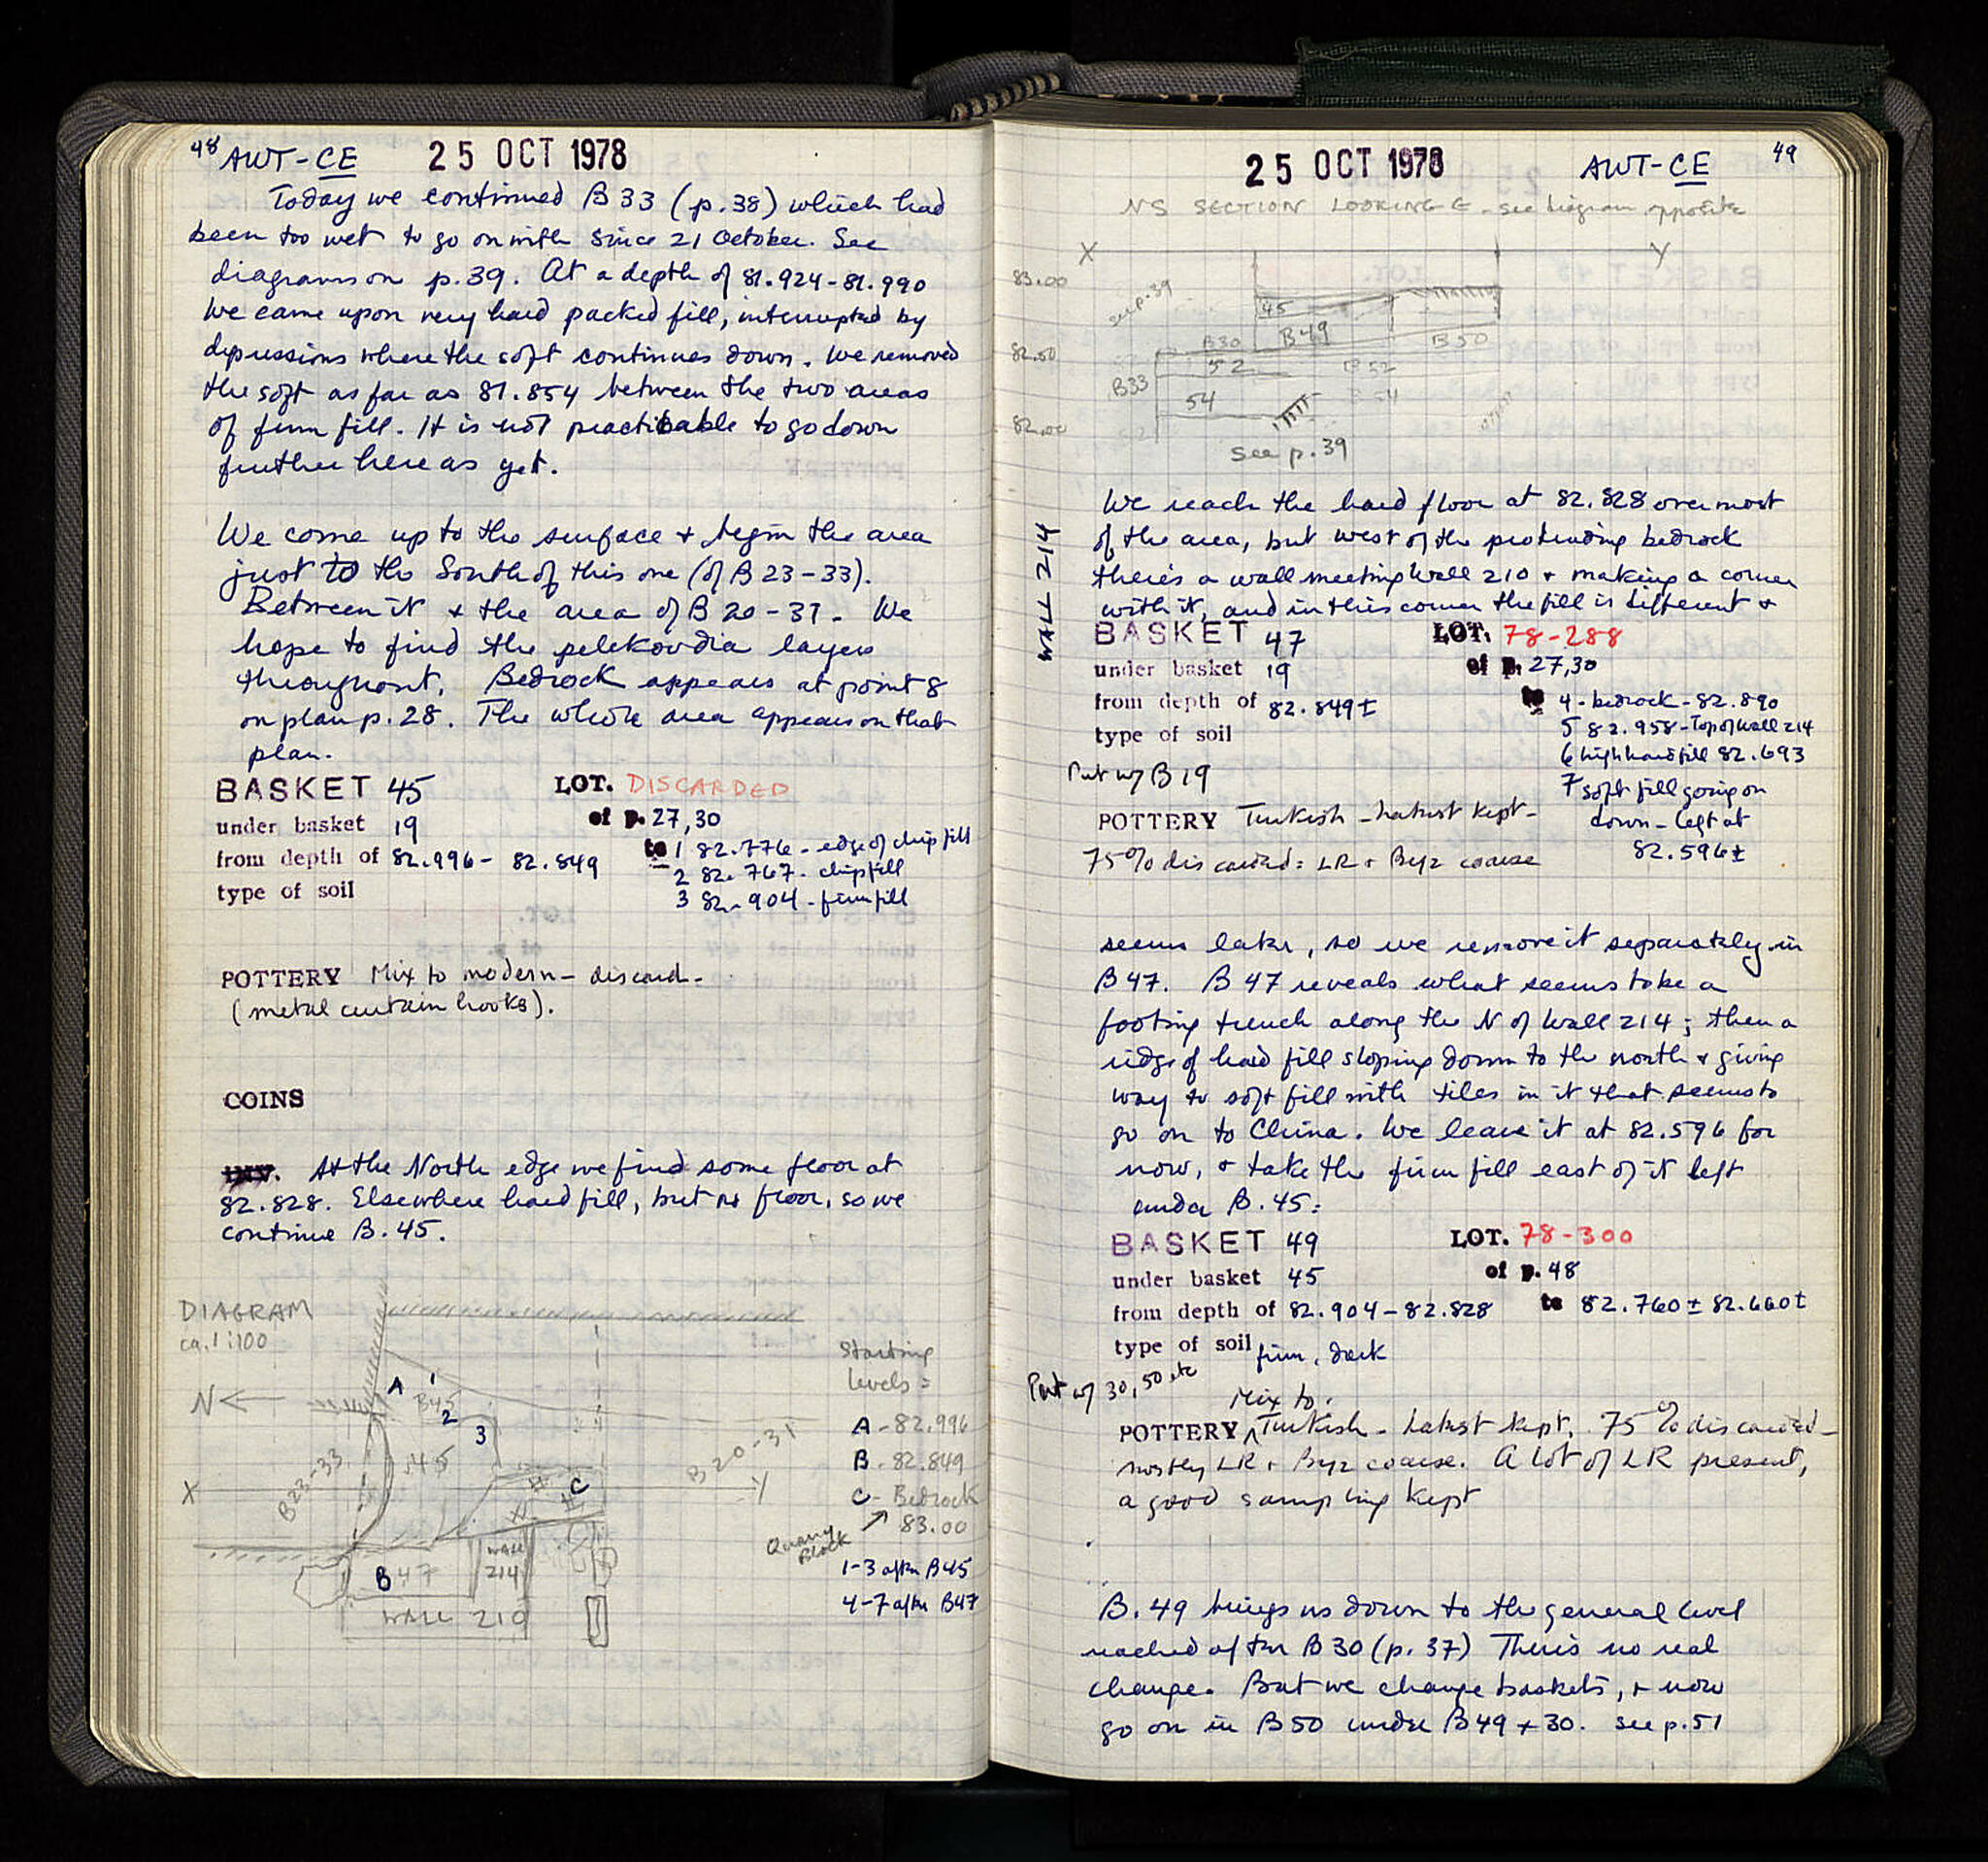 48 AWT-CE 25 OCT 1978
Today we continued B 33 (p.38) which had
been too wet to go on with since 21 October. See
diagrams on p.39. At a depth of 81.924-81.990
We came upon very hard packed fill, interrupted by
depressions where the soft continues down. We removed
the soft as far as 81.854 between the two areas
of firm fill. It is not practicable to go down
further here as yet.
We come up to the surface + begin the area
just to the South of this one (of B 23-33).
Between it + the area of B 20-31. We
hope to find the pelekoudia layers
throughout. Bedrock appears at point 8
on plan p. 28. The whole area appears on that
plan.
BASKET 45 LOT. DISCARDED
under basket 19 of p. 27,30
from depth of 82.996 - 82.849 to 1 82.776 - edge of chip fill
2 82.767 - chip fill
type of soil 3 82.904 - firm fill
POTTERY Mix to modern - discard -
(metal curtain hooks).
COINS
INV. At the North edge we find some floor at
82.828. Elsewhere hard fill, but no floor, so we
continue B.45.
DIAGRAM
ca. 1:100
N
Starting
levels =
A - 82.996
B - 82.849
C - Bedrock
83.00
Quarry
Block
1-3 after B45
4-7 after B47
A
1
B45
2
3
45
B 23-33
B 20-31
X
Y
C
B 47
WALL
214
WALL 210
25 OCT 1978 AWT-CE 49
NS SECTION LOOKING E - see diagram opposite
X Y
83.00
see p.39
45
B49
B30
B50
82.50
52
B52
B33
54
B54
82.00
see p.39
We reach the hard floor at 82.828 over most
of the area, but west of the protruding bedrock
there's a wall meeting Wall 210 + making a corner
with it, and in this corner the fill is different +
WALL 214
BASKET 47 LOT. 78-288
under basket 19 of p. 27,30
from depth of 82.849± to 4 - bedrock - 82.890
5 82.958 - Top of wall 214
type of soil 6 high hard fill 82.693
Put w/ B19 7 soft fill going on
down - left at
82.596±
POTTERY Turkish - latest kept -
75% discarded: LR + Byz coarse
seems later, so we remove it separately in
B 47. B 47 reveals what seems to be a
footing trench along the N of Wall 214; then a
ridge of hard fill sloping down to the north + giving
way to soft fill with tiles in it that seems to
go on to China. We leave it at 82.596 for
now, + take the firm fill east of it left
under B. 45:
BASKET 49 LOT. 78-300
under basket 45 of p. 48
from depth of 82.904 - 82.828 to 82.760± 82.660±
type of soil firm, dark
Put w/ 30, 50 etc
Mix to
POTTERY Turkish - latest kept. 75% discarded -
mostly LR + Byz coarse. A lot of LR present,
a good sampling kept
B. 49 brings us down to the general level
reached after B 30 (p. 37) There's no real
change. But we change baskets, + now
go on in B50 under B49 + 30. see p.51